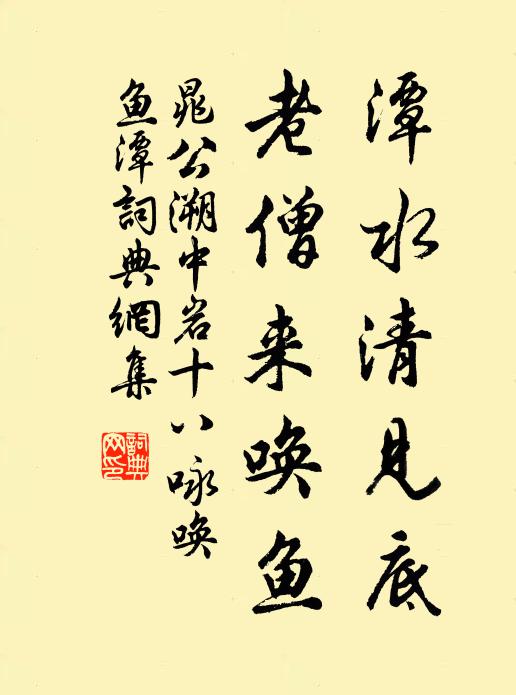 潭水清見底
老僧来喚鱼
晁公溯中岩十八咏喚
鱼潭詞典網集
詞典
网印